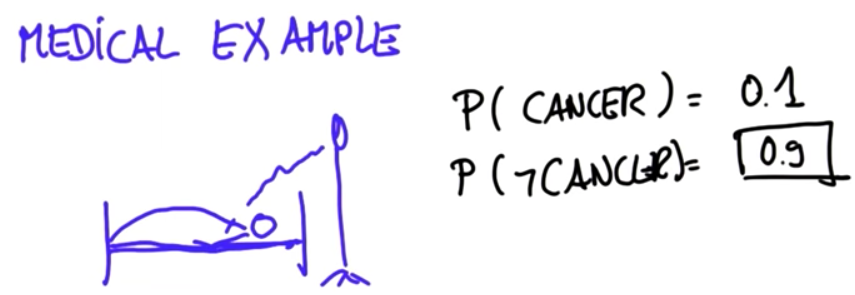 MEDICAL EXAMPLE
P( CANCER ) = 0.1
P (¬CANCER)= 0.9